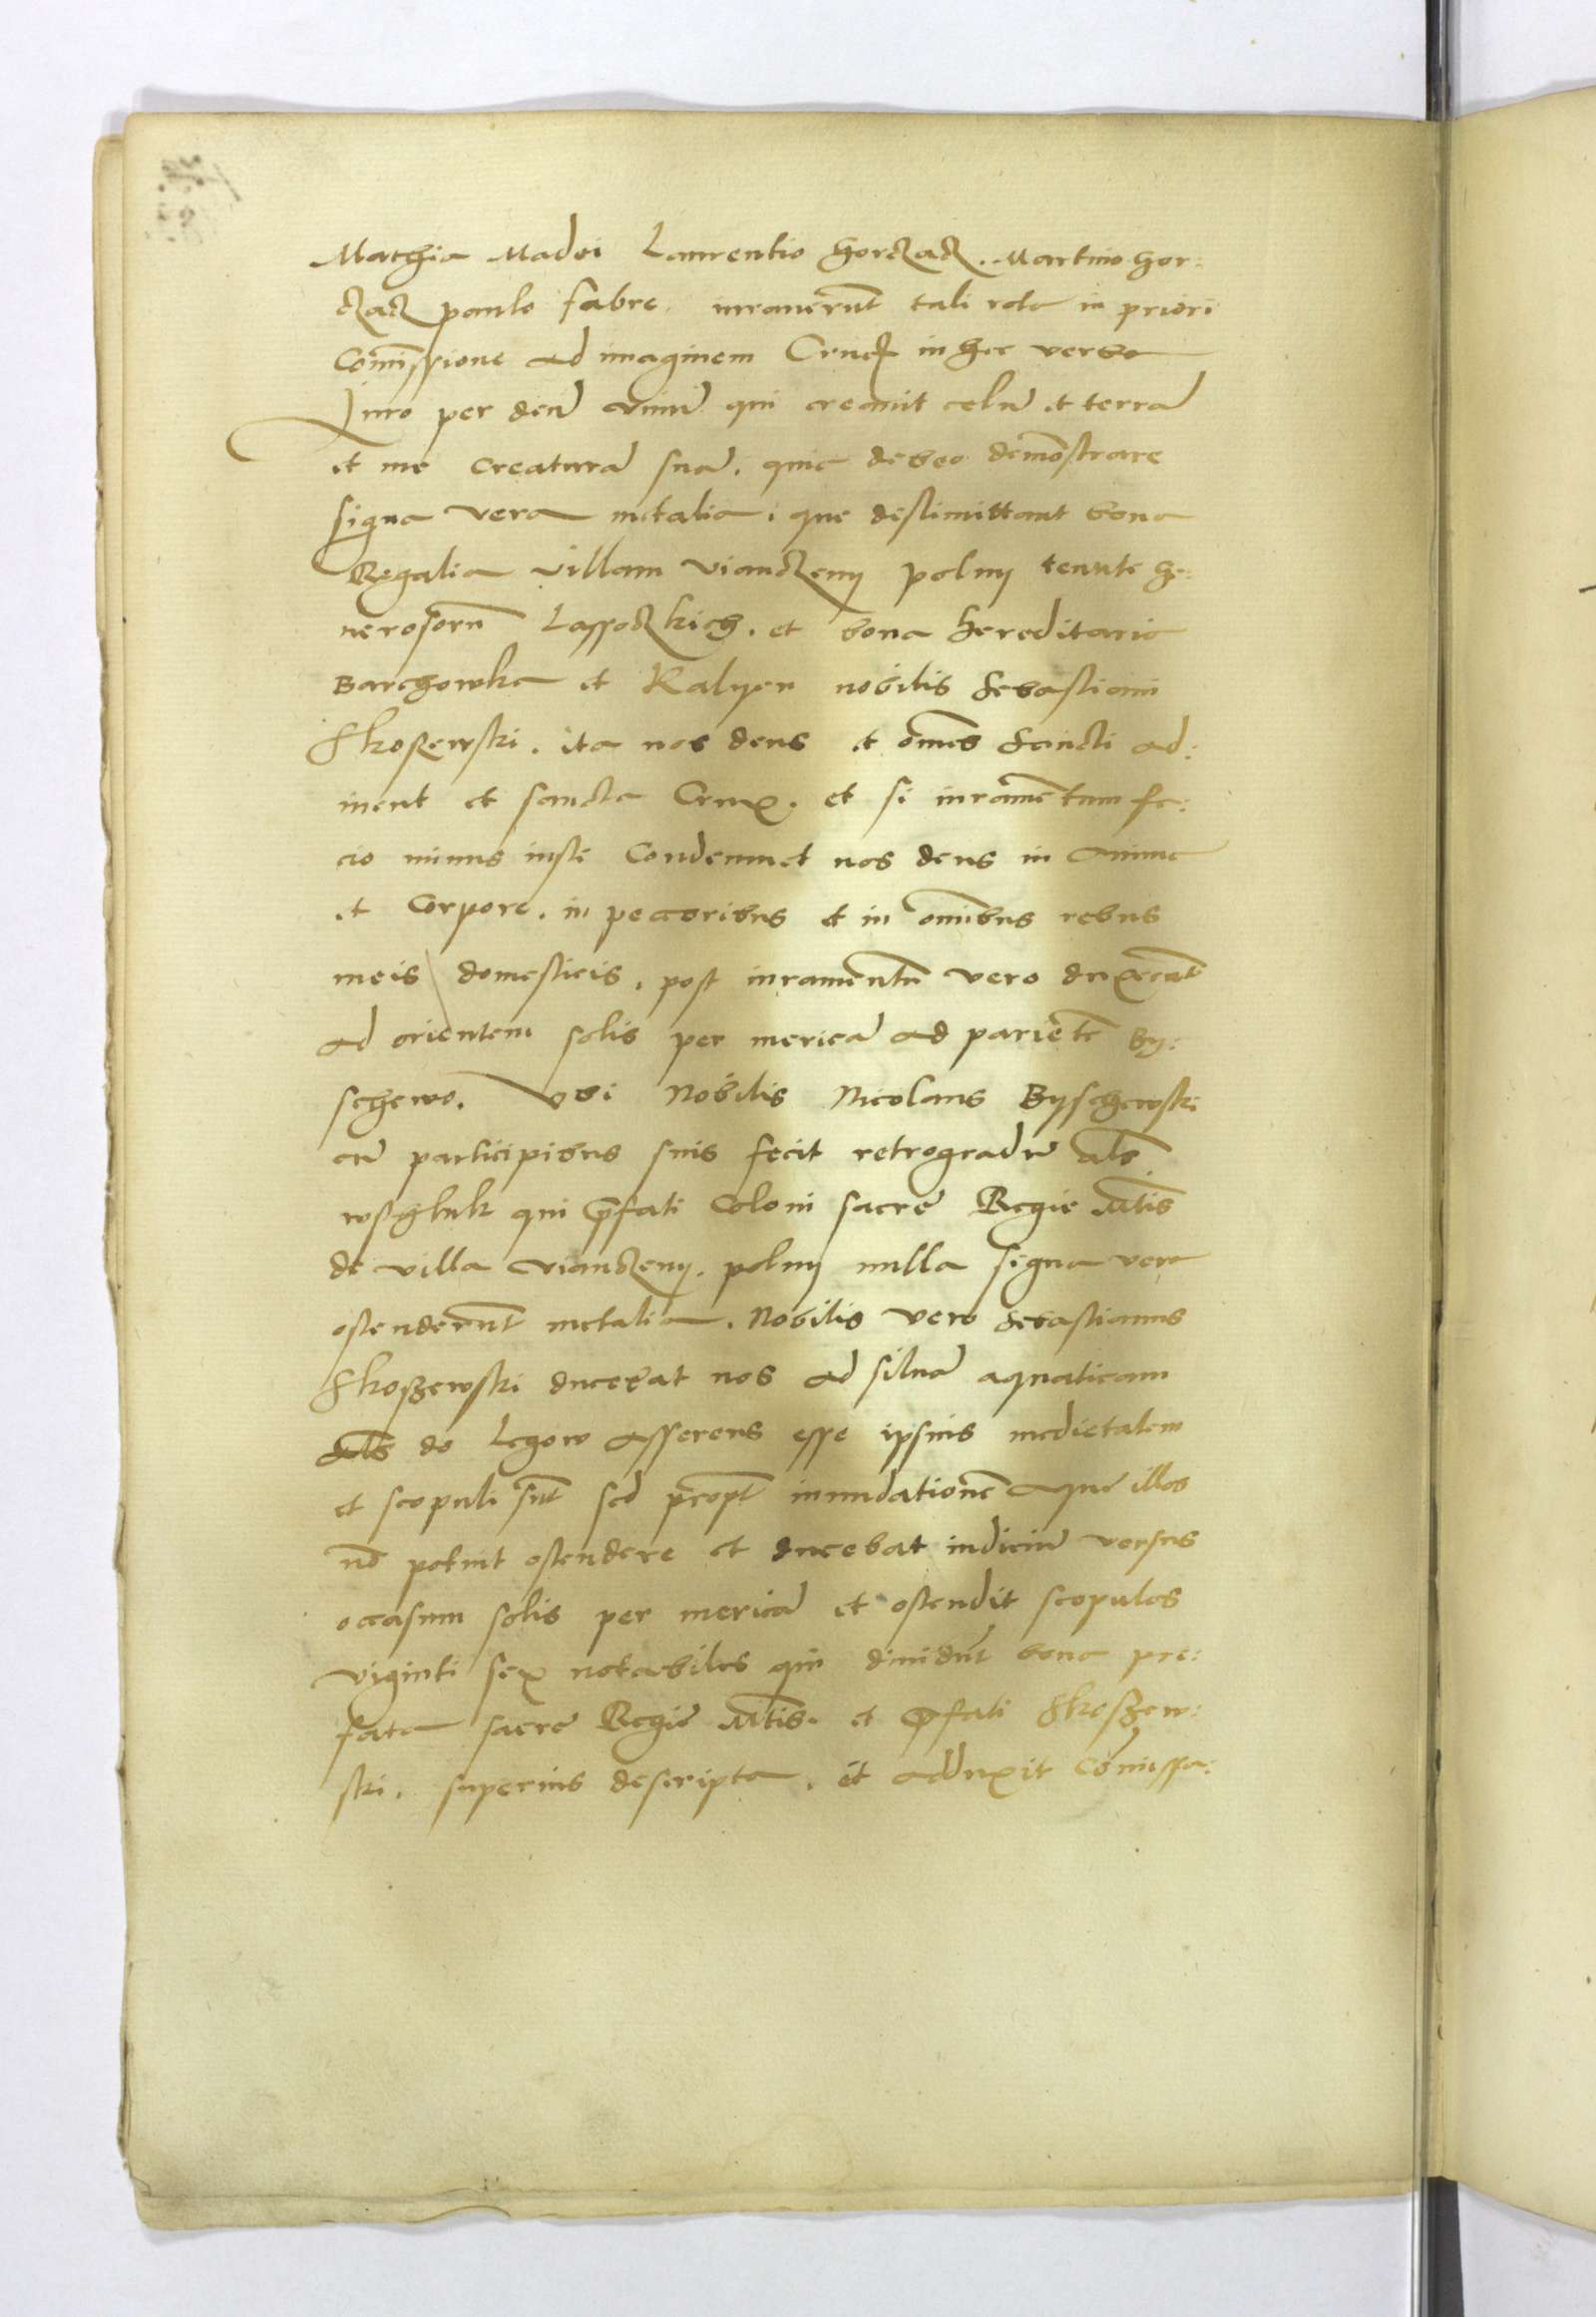 Mathia Madei Laurentio Gorczacz. Martino Gor:
czacz paulo fabro. iurauerūt tali rota in priori
Comīssione ad imaginem Crucf in hec verba
Juro per deū viuū qui creauit celū et terrā
et me creaturā suā. quia debeo demōstrare
signa vera metalia. que distimittant bona
Regalia villam vianczeny polny tenute Ge:
nerosorū Lassoczkich. et bona hereditaria
Barchowka et Kalyen nobilis Sebastiani
Skoszewski. ita nos deus et om̄es Sancti ad:
iuent et sancta Crux. et si iuramentum fa:
cio minus iuste Condemnet nos deus in anima
et Corpore. in pecoribus et in om̄ibus rebus
meis domesticis. post iuramentū vero duxerūt
ad orientem solis per mericā ad parietē By:
schewo. Vbi Nobilis Nicolaus Byschewski
cū participibus suis fecit retrogradū als̄
wsthluk qui p̄fati Coloni sacre Regie Mtis̄
de villa vianczeny. polny nulla signa vera
ostenderūt metalia. Nobilis vero Sebastianus
Skoszewski ducerat nos ad siluā aquaticam
als̄ do Legow asserens esse ipsius medietatem
et scopuli sūt sed p̄ropt̄ inundationē aque illos
nō potuit ostendere et ducebat iudiciū versus
occasum solis per mericā et ostendit scopulos
viginti sex notabiles qui diuidūt bona pre:
fata sacre Regie Mtis̄. et p̄fati Skoszew:
ski. superius descripta. et adduxit Com̄issa: